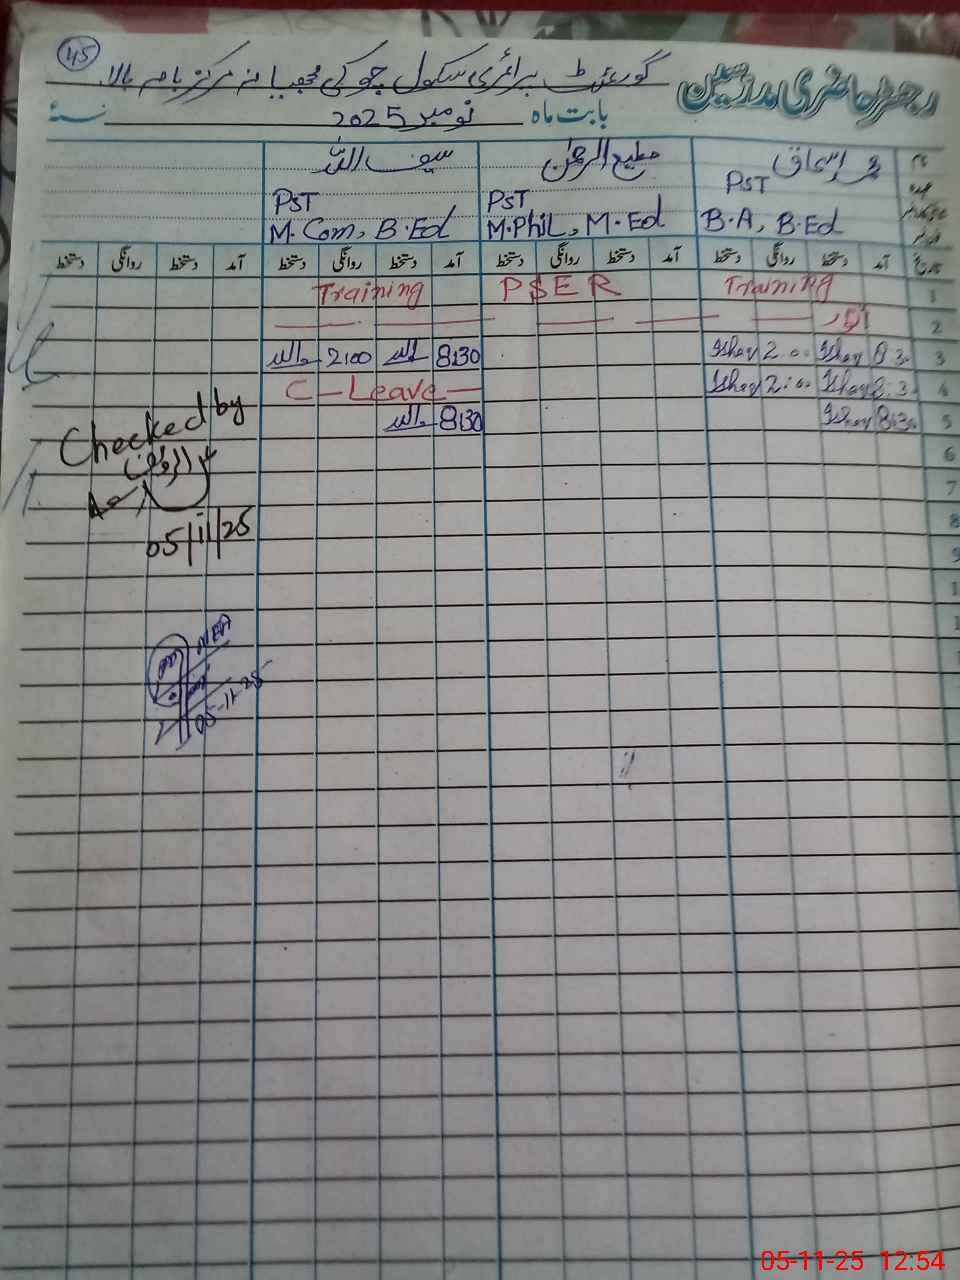 45
رجسٹر حاضری مدرسین گورنمنٹ پرائمری سکول چوکی مرکز بالا
بابت ماہ نومبر 2025 سنۂ
نام محمد اسحاق مطیع الرحمٰن سیف اللہ
عہدہ PST PST PST
B.A, B.Ed M.Phil, M.Ed M.Com, B.Ed
تاریخ آمد دستخط روانگی دستخط آمد دستخط روانگی دستخط آمد دستخط روانگی دستخط آمد دستخط روانگی دستخط
1 Training PSER Training
2 اتوار
3 8:30 Ishaq 2:00 Ishaq 8:30 2:00
4 8:30 Ishaq 2:00 Ishaq C-Leave
5 8:30 Ishaq 8:30
6
7
8
Checked by
05/11/25
05-11-25
05-11-25 12:54